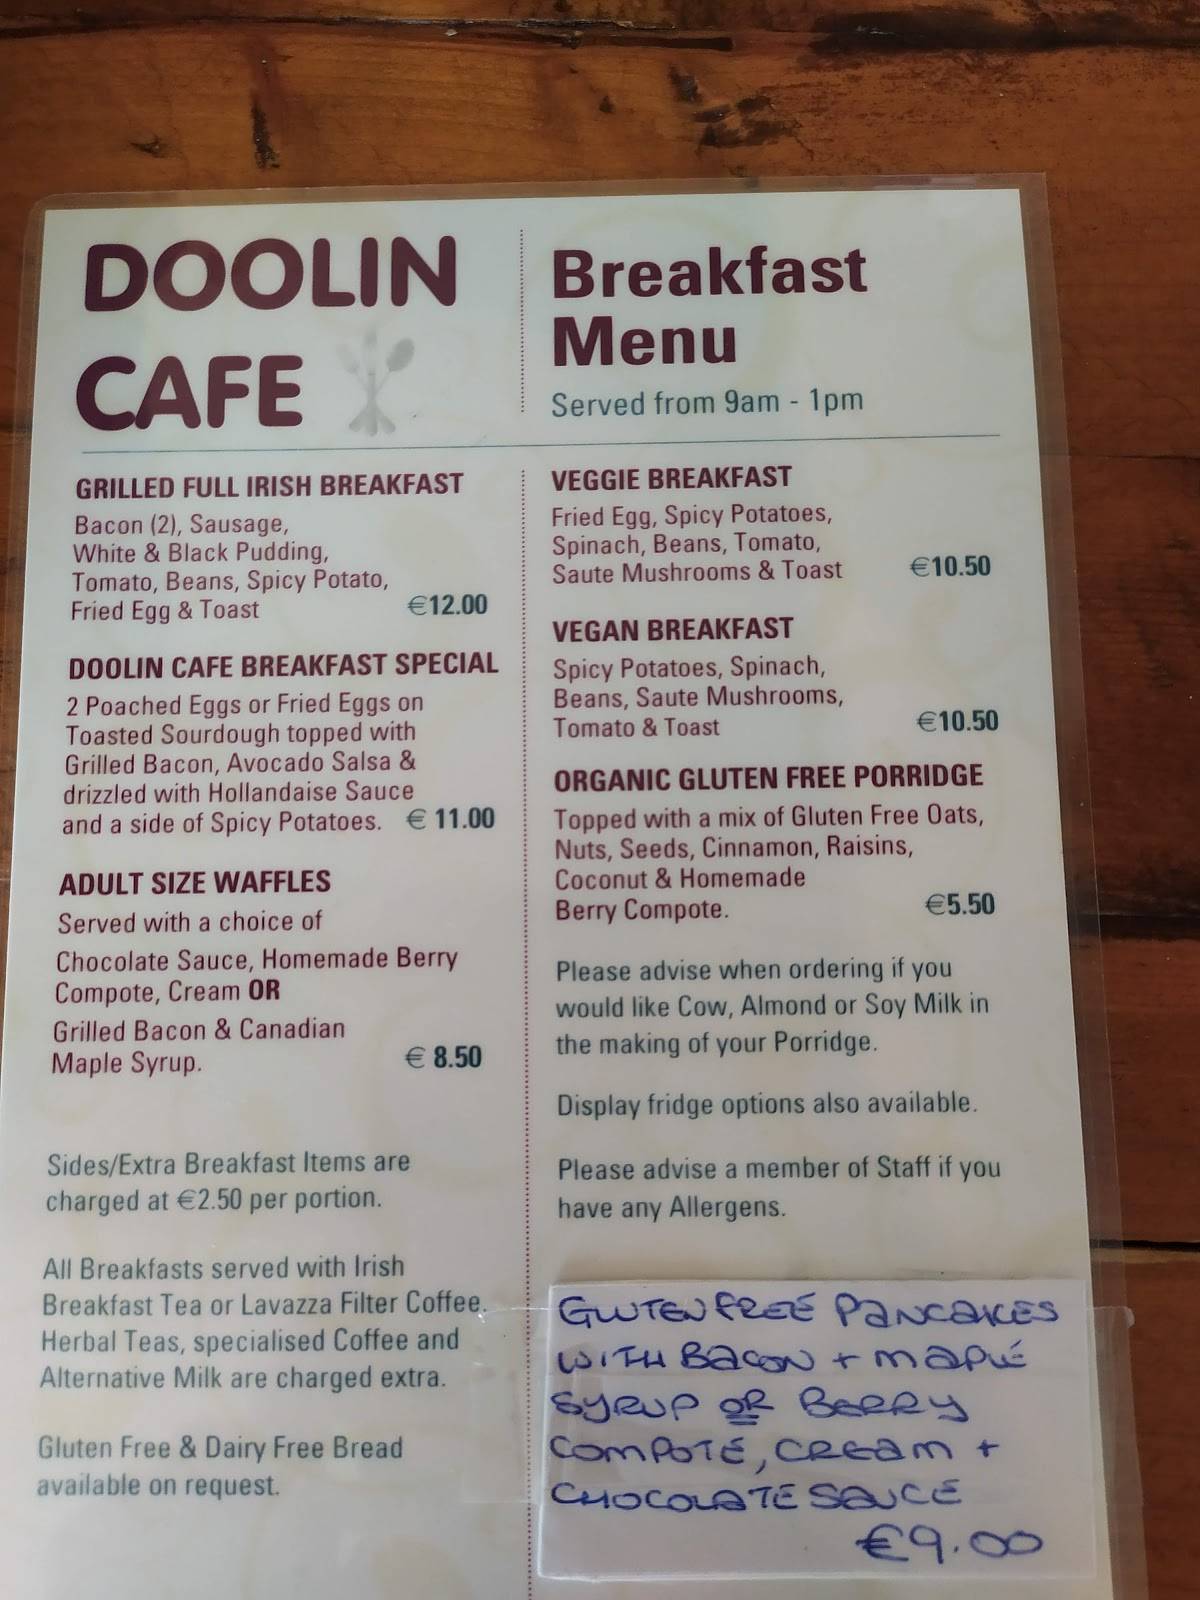 DOOLIN
CAFE
Breakfast
Menu
Served from 9am - 1pm
GRILLED FULL IRISH BREAKFAST
Bacon (2), Sausage,
White & Black Pudding,
Tomato, Beans, Spicy Potato,
Fried Egg & Toast €12.00
DOOLIN CAFE BREAKFAST SPECIAL
2 Poached Eggs or Fried Eggs on
Toasted Sourdough topped with
Grilled Bacon, Avocado Salsa &
drizzled with Hollandaise Sauce
and a side of Spicy Potatoes. € 11.00
ADULT SIZE WAFFLES
Served with a choice of
Chocolate Sauce, Homemade Berry
Compote, Cream OR
Grilled Bacon & Canadian
Maple Syrup. € 8.50
Sides/Extra Breakfast Items are
charged at €2.50 per portion.
All Breakfasts served with Irish
Breakfast Tea or Lavazza Filter Coffee.
Herbal Teas, specialised Coffee and
Alternative Milk are charged extra.
Gluten Free & Dairy Free Bread
available on request.
VEGGIE BREAKFAST
Fried Egg, Spicy Potatoes,
Spinach, Beans, Tomato,
Saute Mushrooms & Toast €10.50
VEGAN BREAKFAST
Spicy Potatoes, Spinach,
Beans, Saute Mushrooms,
Tomato & Toast €10.50
ORGANIC GLUTEN FREE PORRIDGE
Topped with a mix of Gluten Free Oats,
Nuts, Seeds, Cinnamon, Raisins,
Coconut & Homemade
Berry Compote. €5.50
Please advise when ordering if you
would like Cow, Almond or Soy Milk in
the making of your Porridge.
Display fridge options also available.
Please advise a member of Staff if you
have any Allergens.
GLUTEN FREE PANCAKES
WITH BACON + MAPLE
SYRUP OR BERRY
COMPOTE, CREAM +
CHOCOLATE SAUCE
€9.00